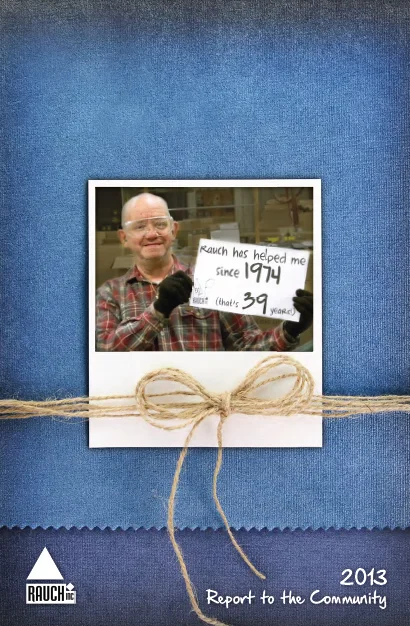 Rauch has helped me
since 1974
(that's 39 years)
RAUCH INC
2013
Report to the Community